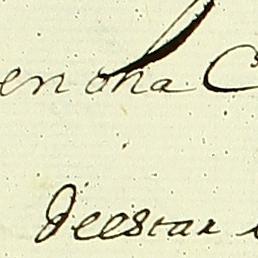 en ona C
deestar